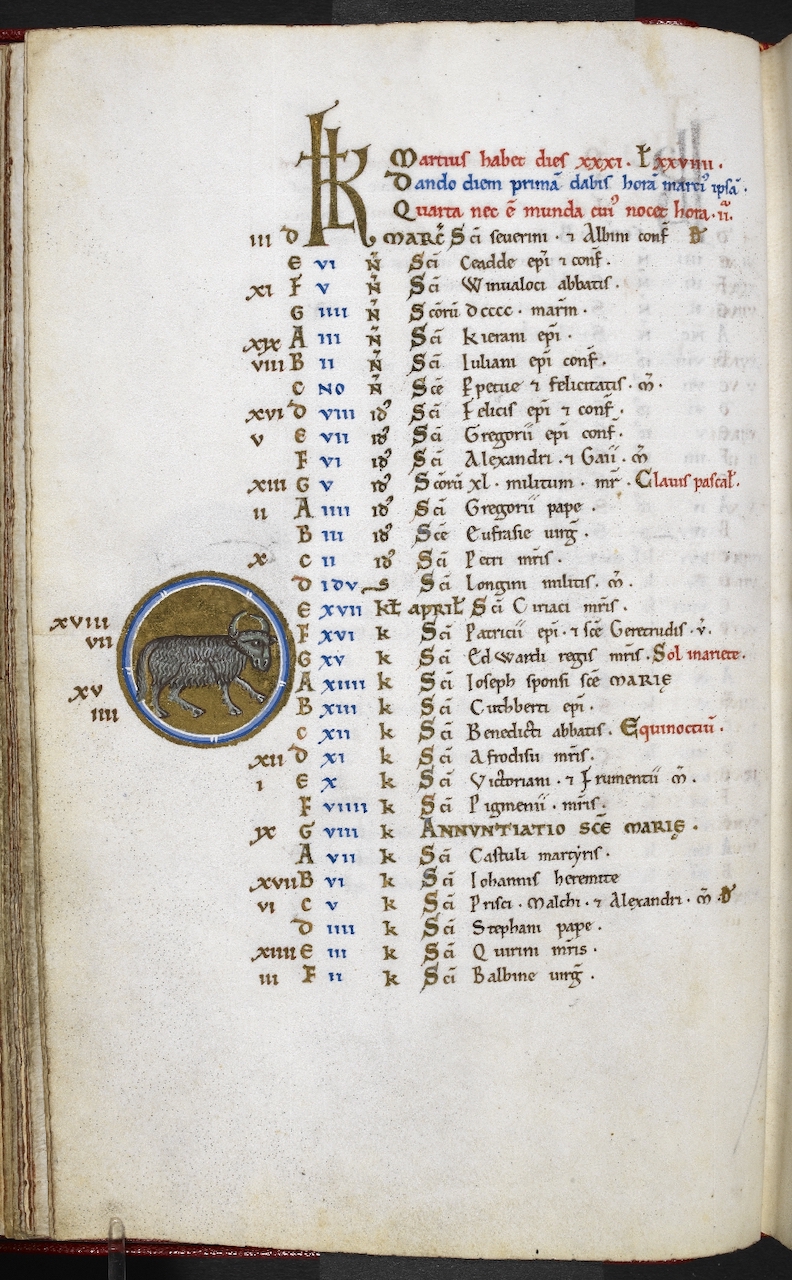 KL Martius habet dies xxxi. Ł xxviiii.
Dando diem primā dabis horā marci᾽ ipsā.
Quarta nec ē munda cui᾽ nocet hora. ii.
iii D MARC̄ Sc̄i Severini. ⁊ Albini conf̄ D̵
E vi N̄ Sc̄i Ceadde ep̄i ⁊ conf̄.
xi F v N̄ Sc̄i Winualoci abbatis.
G iiii N̄ Sc̄orū dcccc. mar̄m.
xix A iii N̄ Sc̄i Kierani ep̄i.
viii B ii N̄ Sc̄i Iuliani ep̄i conf̄.
C NO N̄ Sc̄e Ꝑpetue ⁊ felicitatis. m̄.
xvi D viii id᾽ Sc̄i Felicis ep̄i ⁊ conf̄.
v E vii id᾽ Sc̄i Gregorii ep̄i conf̄.
F vi id᾽ Sc̄i Alexandri. ⁊ Gaii. m̄
xiii G v id᾽ Sc̄orū xl. militum. mr̄. Clauis pascał.
ii A iiii id᾽ Sc̄i Gregorii pape.
B iii id᾽ Sc̄e Eufrasie uirḡ.
x C ii id᾽ Sc̄i Petri mr̄is.
D IDVS Sc̄i Longini militis. m̄.
xviii E xvii kł april̄ Sc̄i Ciriaci mr̄is.
vii F xvi k Sc̄i Patricii ep̄i. ⁊ sc̄e Geretrudis. v̄.
G xv k Sc̄i Edwardi regis mr̄is. Sol inariete.
xv A xiiii k Sc̄i Ioseph sponsi sc̄e MARIĘ
iiii B xiii k Sc̄i Cuthberti ep̄i.
C xii k Sc̄i Benedicti abbatis. Equinoctiū.
xii D xi k Sc̄i Afrodisii mr̄is.
i E x k Sc̄i Victoriani. ⁊ Frumentii m̄.
F viiii k Sc̄i Pigmenii. mr̄is.
ix G viii k ANNVNTIATIO SC̄E MARIĘ.
A vii k Sc̄i Castuli martyris.
xvii B vi k Sc̄i Iohannis heremite
vi C v k Sc̄i Prisci. Malchi. ⁊ Alexandri. m̄ D̵
D iiii k Sc̄i Stephani pape.
xiiii E iii k Sc̄i Quirini mr̄is.
iii F ii k Sc̄i Balbine uirḡ.